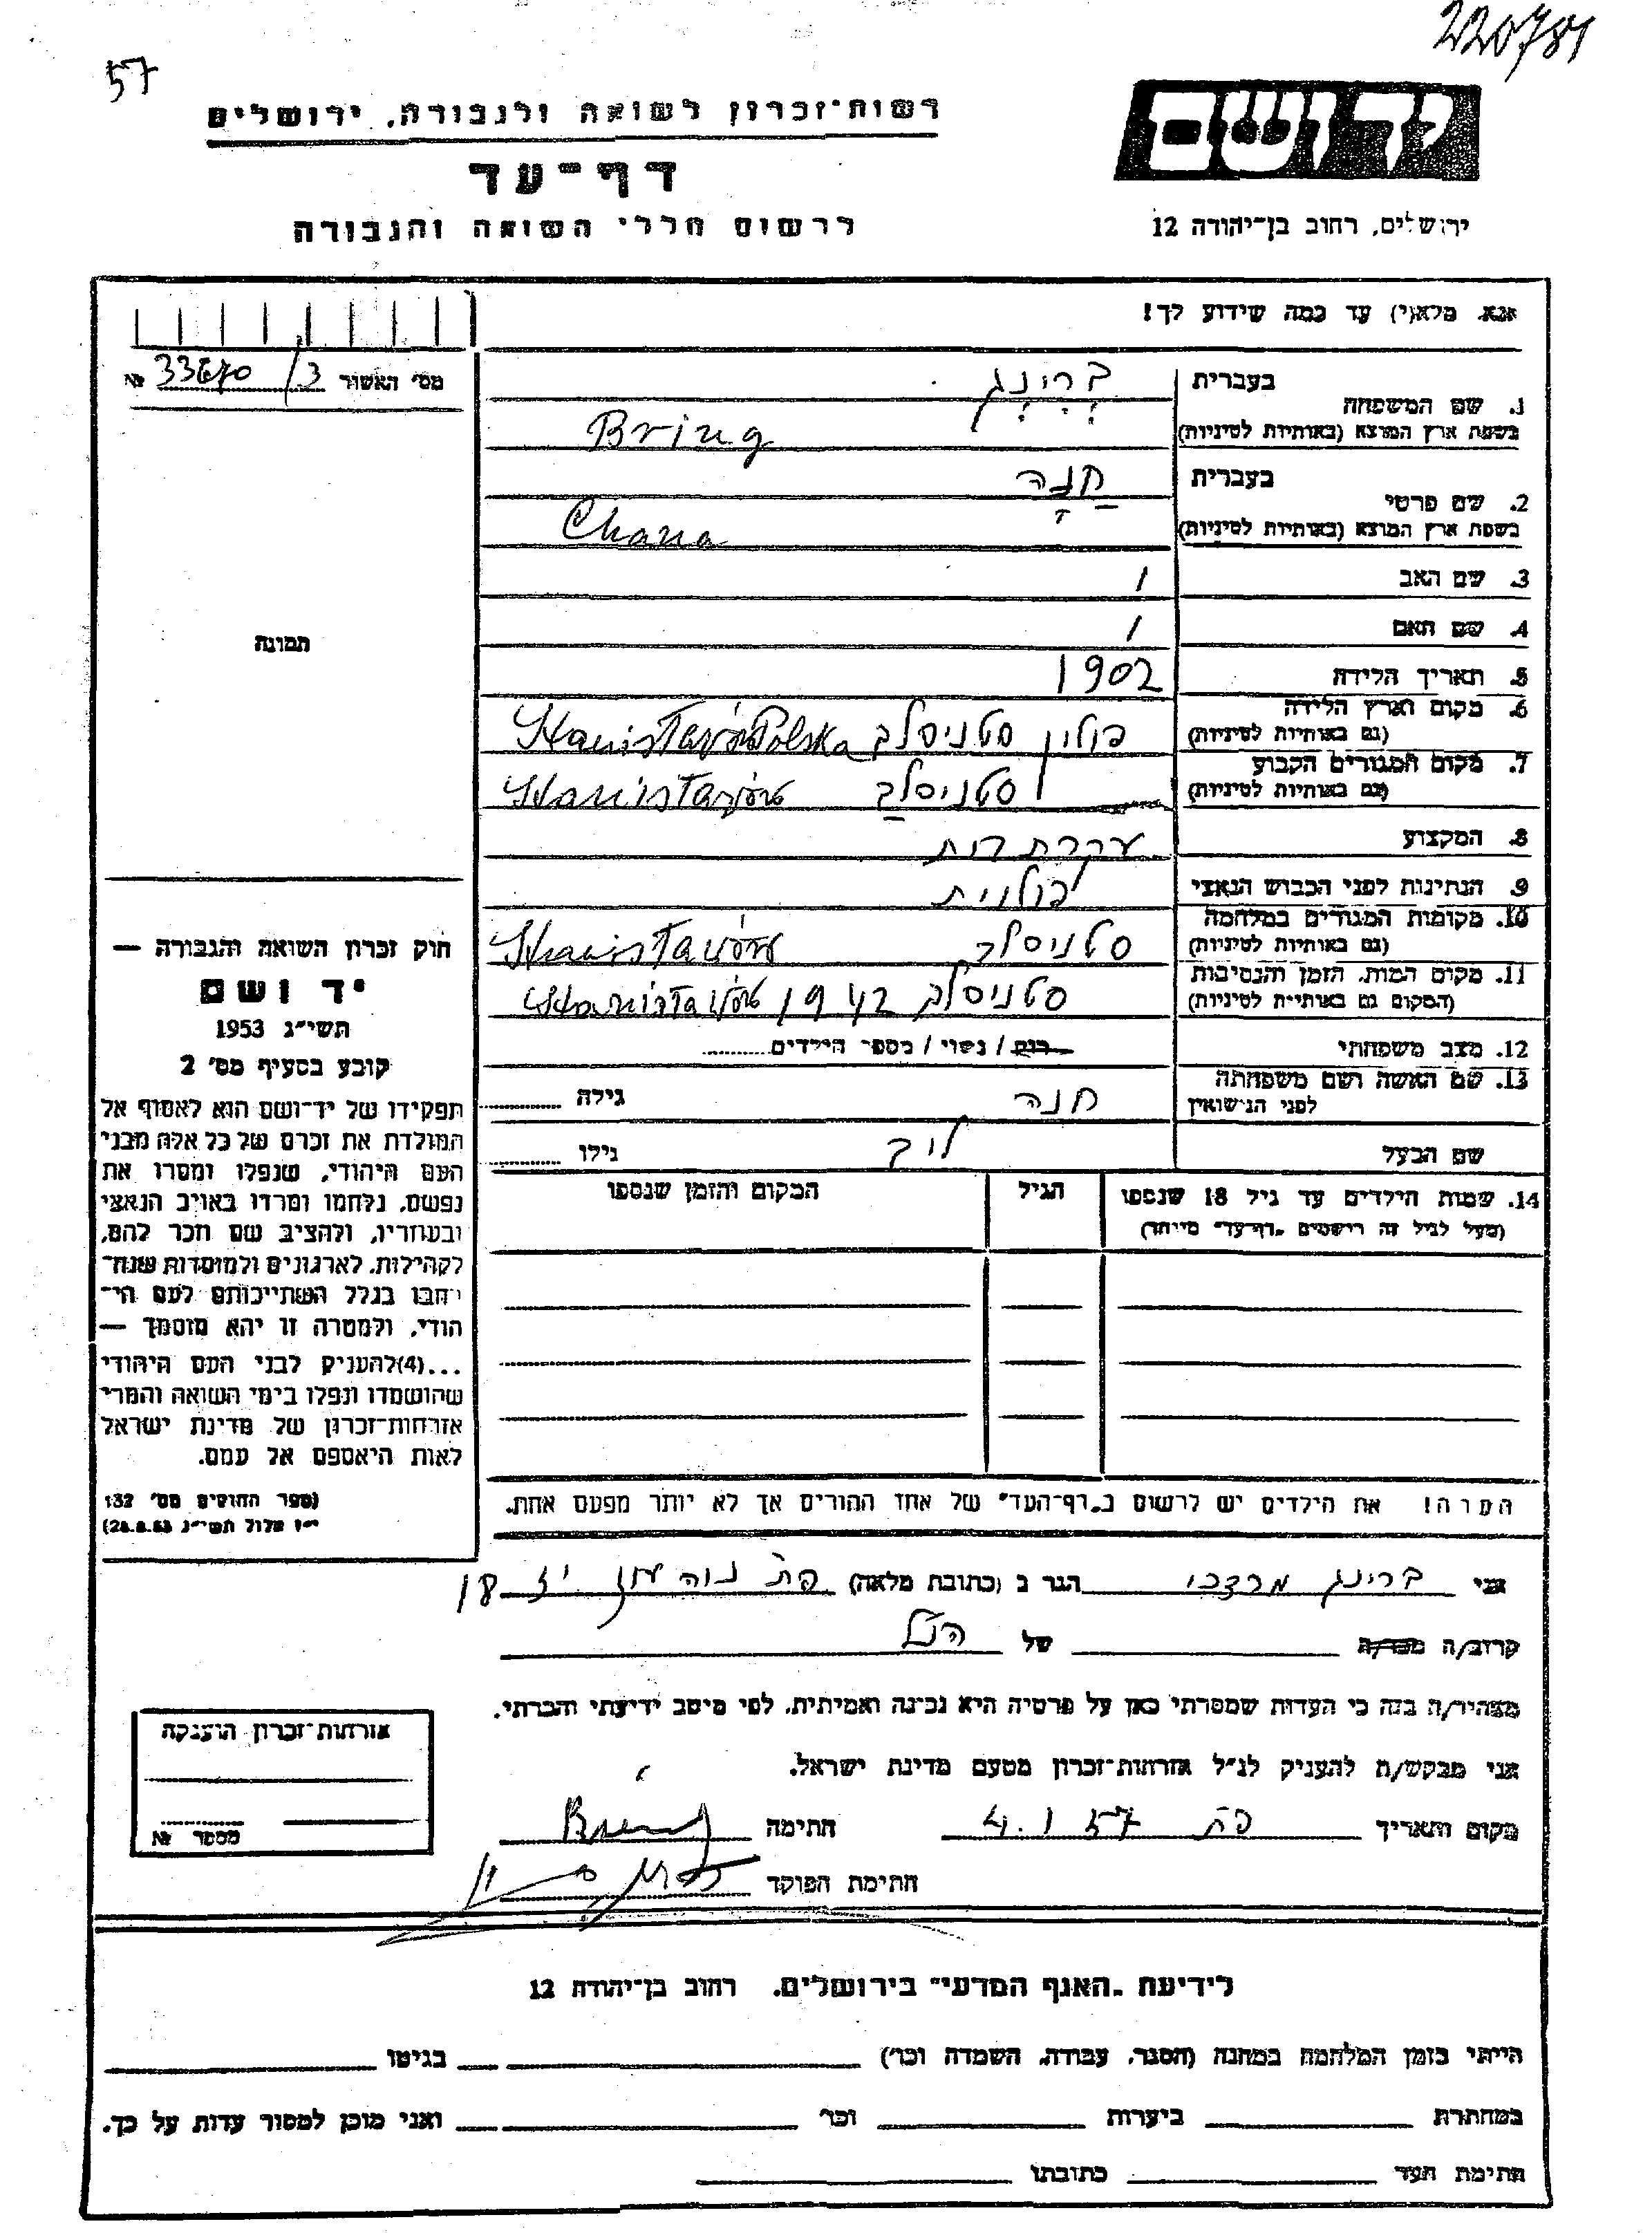 220781
57
רשות־זכרון לשואה ולגבורה, ירושלים
יד ושם
דף־עד
לרשום חללי השואה והגבורה
ירושלים, רחוב בן־יהודה 12
אנא, מלא(י) עד כמה שידוע לך!
מס' האשור № /3
1. שם המשפחה
בעברית ברינג
בשפת ארץ המוצא (באותיות לטיניות) Bring
2. שם פרטי
בעברית חנה
בשפת ארץ המוצא (באותיות לטיניות) Chana
3. שם האב /
4. שם האם /
5. תאריך הלידה 1902
6. מקום וארץ הלידה (גם באותיות לטיניות) פולין סטניסלב Stanisławów Polska
7. מקום המגורים הקבוע (גם באותיות לטיניות) סטניסלב Stanisławów
8. המקצוע עקרת בית
9. הנתינות לפני הכבוש הנאצי פולנית
10. מקומות המגורים במלחמה (גם באותיות לטיניות) סטניסלב Stanisławów
11. מקום המות, הזמן והנסיבות (המקום גם באותיות לטיניות) סטניסלב 1942 Stanisławów
12. מצב משפחתי רוק / נשוי / מספר הילדים
13. שם האשה ושם משפחתה לפני הנישואין חנה גילה
שם הבעל לייב גילו
14. שמות הילדים עד גיל 18 שנספו
(מעל לגיל זה רושמים "דף־עד" מיוחד)
הגיל
המקום והזמן שנספו
הערה! את הילדים יש לרשום ב"דף־העד" של אחד ההורים אך לא יותר מפעם אחת.
תמונה
חוק זכרון השואה והגבורה —
יד ושם
תשי"ג 1953
קובע בסעיף מס' 2
תפקידו של יד־ושם הוא לאסוף אל
המולדת את זכרם של כל אלה מבני
העם היהודי, שנפלו ומסרו את
נפשם, נלחמו ומרדו באויב הנאצי
ובעוזריו, ולהציב שם וזכר להם,
לקהילות, לארגונים ולמוסדות שנח־
רבו בגלל השתייכותם לעם הי־
הודי, ולמטרה זו יהא מוסמך —
...(4)להעניק לבני העם היהודי
שהושמדו ונפלו בימי השואה והמרי
אזרחות־זכרון של מדינת ישראל
לאות היאספם אל עמם.
(ספר החוקים מס' 132
י"ז אלול תשי"ג 28.8.53)
אני ברינג מרדכי הגר ב (כתובת מלאה) פת
קרוב/ה מכר/ה של הנ"ל
מצהיר/ה בזה כי העדות שמסרתי כאן על פרטיה היא נכונה ואמיתית, לפי מיטב ידיעתי והכרתי.
אני מבקש/ת להעניק לנ"ל אזרחות־זכרון מטעם מדינת ישראל.
מקום ותאריך פת 4.1.57 חתימה Bring
חתימת הפוקד
אזרחות־זכרון הוענקה
מספר №
לידיעת "האגף המדעי" בירושלים, רחוב בן־יהודה 12
הייתי בזמן המלחמה במחנה (הסגר, עבודה, השמדה וכו') בגיטו
במחתרת ביערות וכו' ואני מוכן למסור עדות על כך.
חתימת העד כתובתו